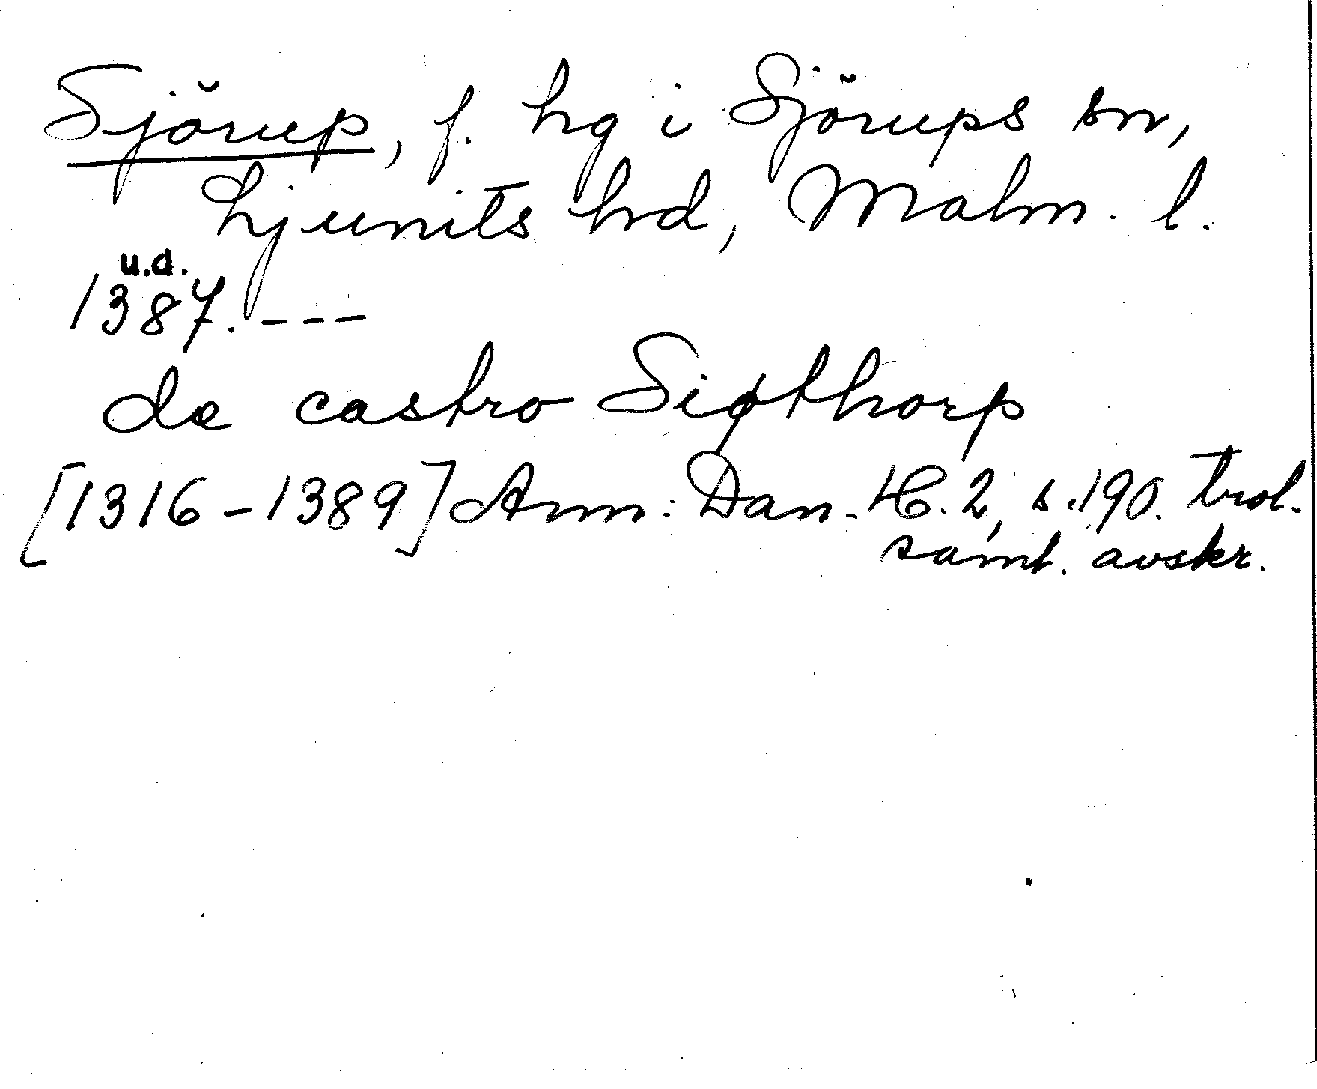 Sjörup, f. hg i Sjörups sn,
Ljunits hd, Malm. l.
u.d.
1387. ---
de castro Siøthorp
[1316-1389] Ann. Dan. H. 2, s. 190. trol.
samt. avskr.